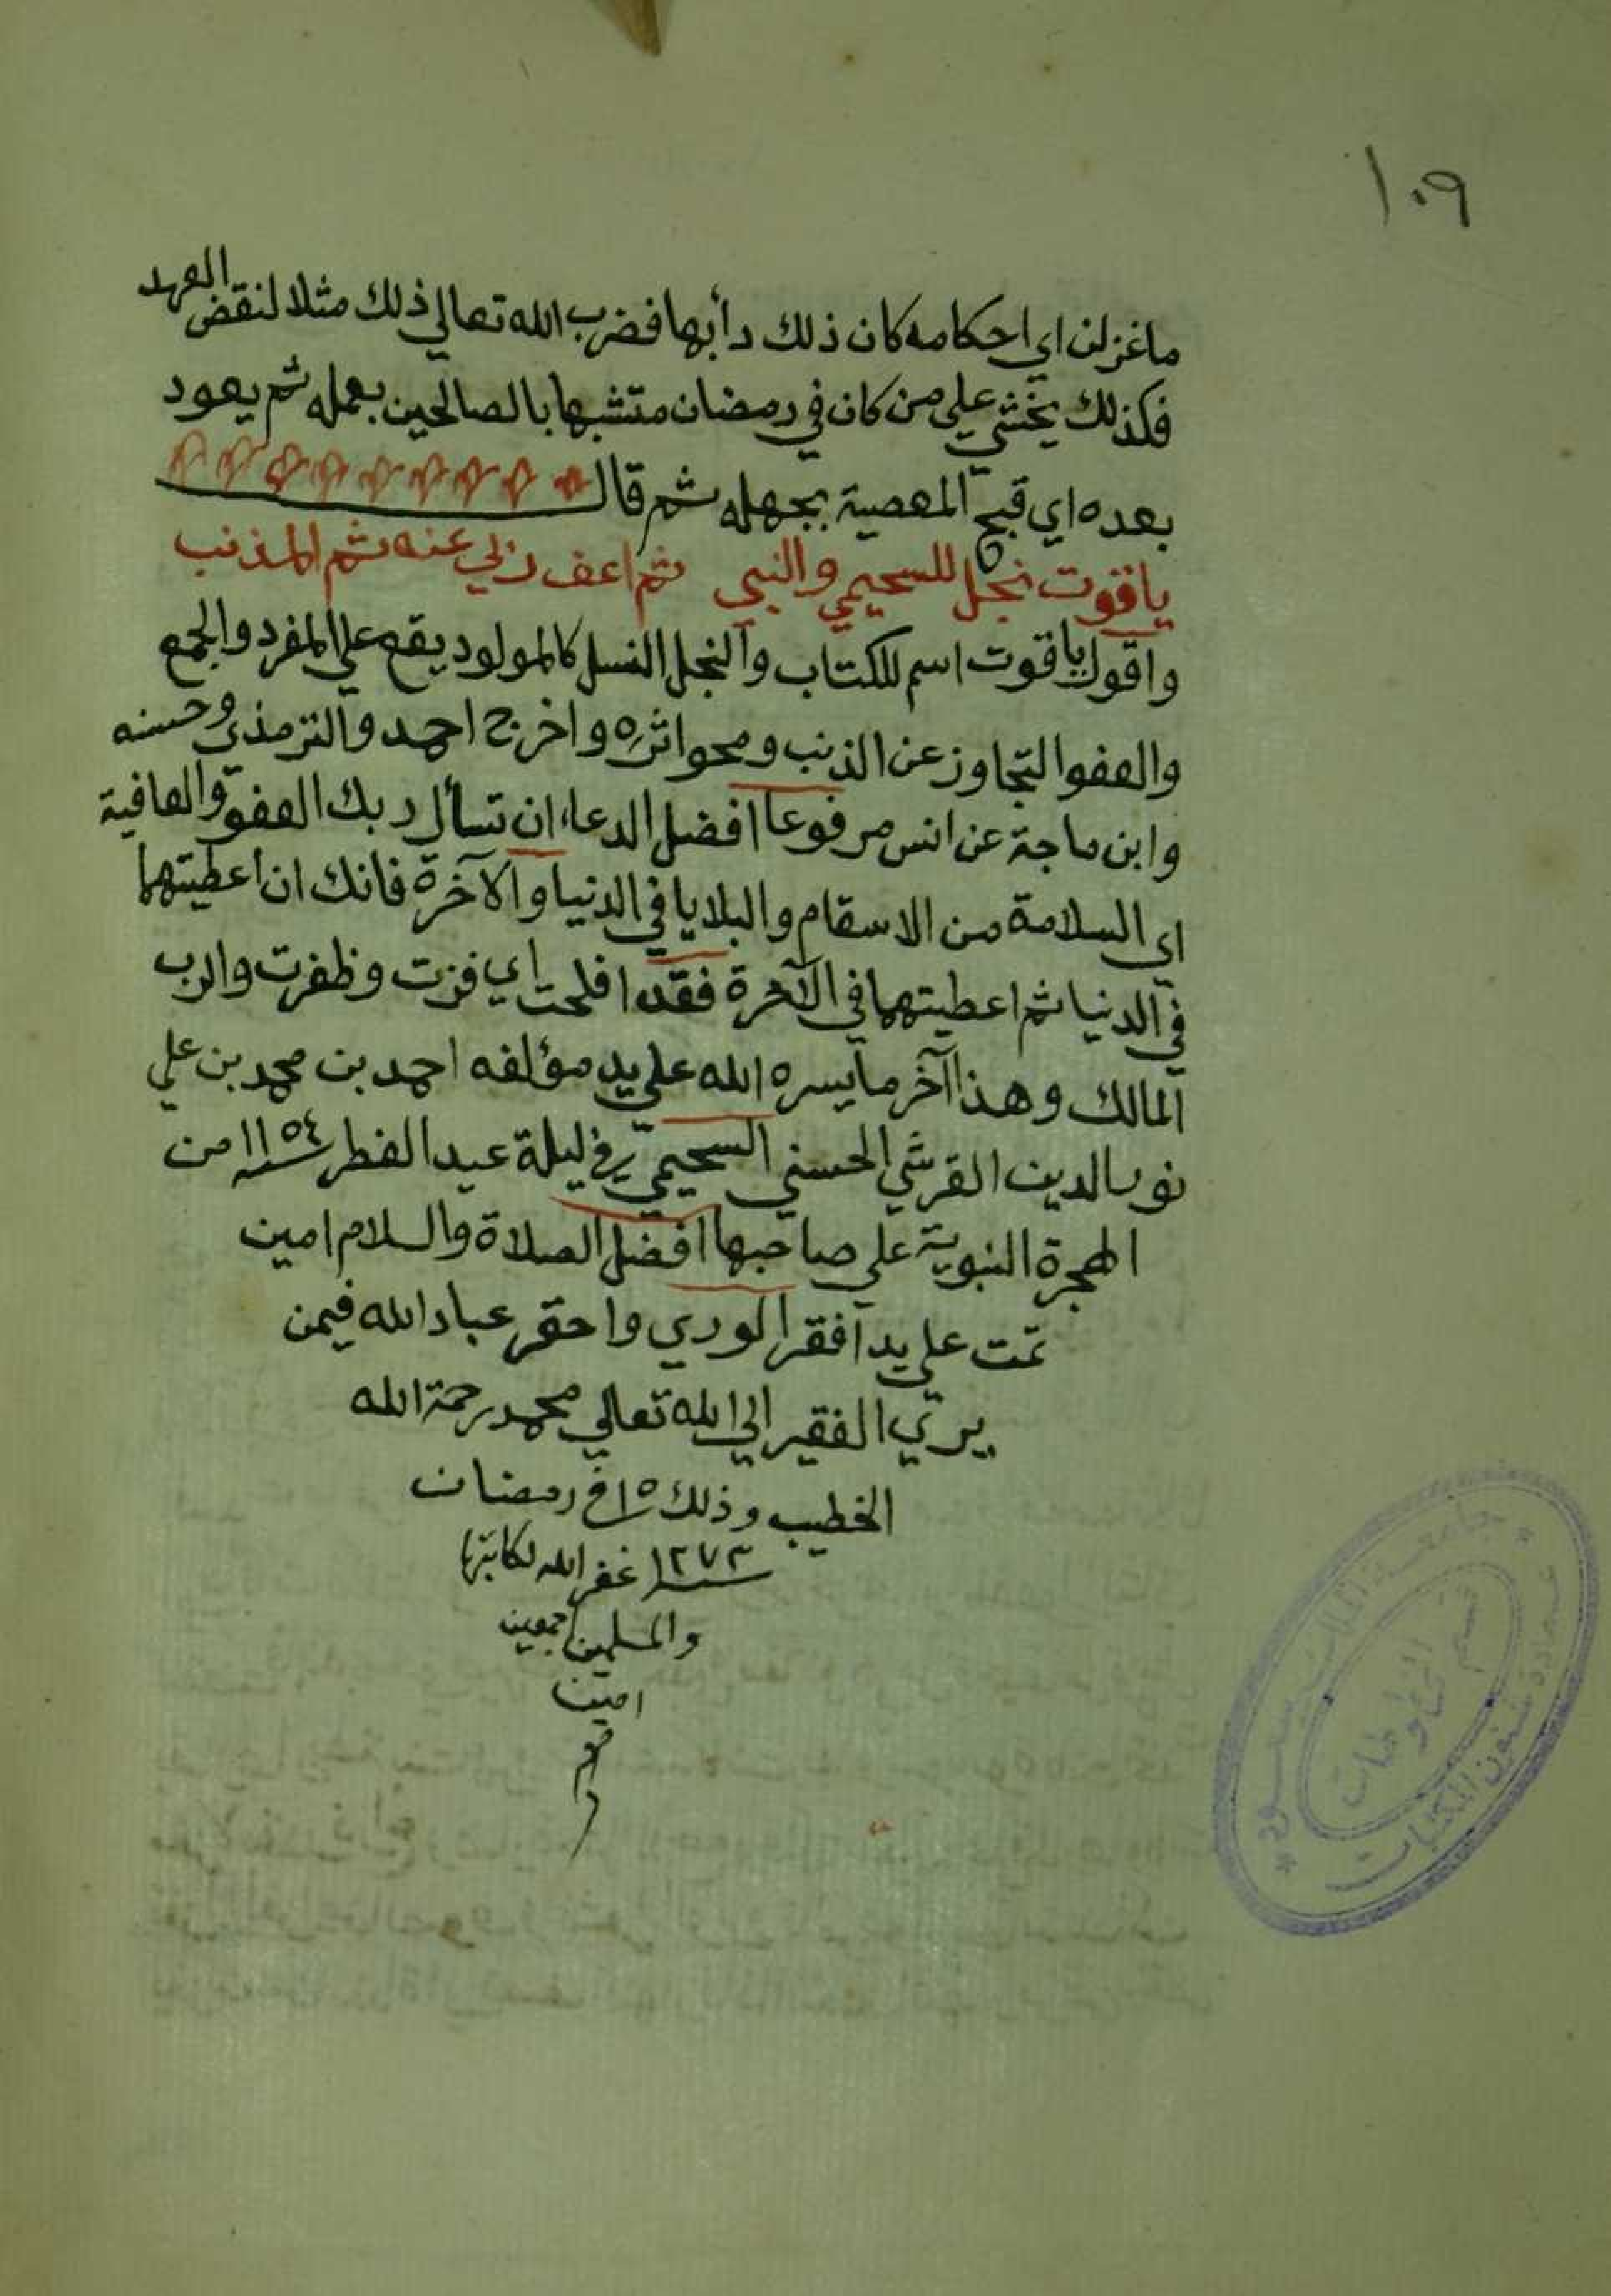 ١٠٩
ماغزلن اي احكامه كان ذلك دأبها فضرب الله تعالي ذلك مثلا لنقض العهد
فكذلك يخشي علي من كان في رمضان متشبها بالصالحين بعمله ثم يعود
بعده اي قبح المعصية بجهله ثم قال
ياقوت نجل للسحيمي والنبي ثم اعف ربي عنه ثم المذنب
واقول ياقوت اسم للكتاب والنجل النسل كالمولود يقع علي المفرد والجمع
والعفو التجاوز عن الذنب ومحو اثره واخرج احمد والترمذي وحسنه
وابن ماجة عن انس مرفوعا افضل الدعاء ان تسأل ربك العفو والعافية
اي السلامة من الاسقام والبلايا في الدنيا والآخرة فانك ان اعطيتهما
في الدنيا ثم اعطيتهما في الآخرة فقد افلحت اي فزت وظفرت والرب
المالك وهذا آخر ما يسره الله علي يد مؤلفه احمد بن محمد بن علي
نور الدين القرشي الحسني السحيمي في ليلة عيد الفطر سنة ١١٥٤ من
الهجرة النبوية علي صاحبها افضل الصلاة والسلام امين
تمت علي يد افقر الوري واحقر عباد الله فيمن
يري الفقير الي الله تعالي محمد رحمة الله
الخطيب وذلك ١٥ في رمضان
سنة ١٢٧٣ غفر الله لكاتبها
والمسلمين اجمعين
امين
جامعة الملك سعود
عمادة شئون المكتبات
قسم المخطوطات